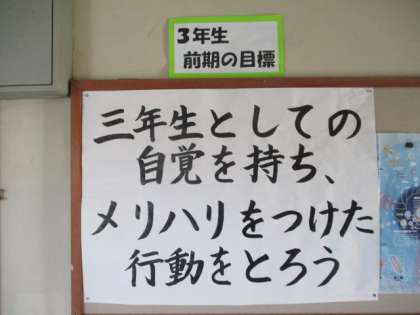 3年生
前期の目標
三年生としての
自覚を持ち、
メリハリをつけた
行動をとろう